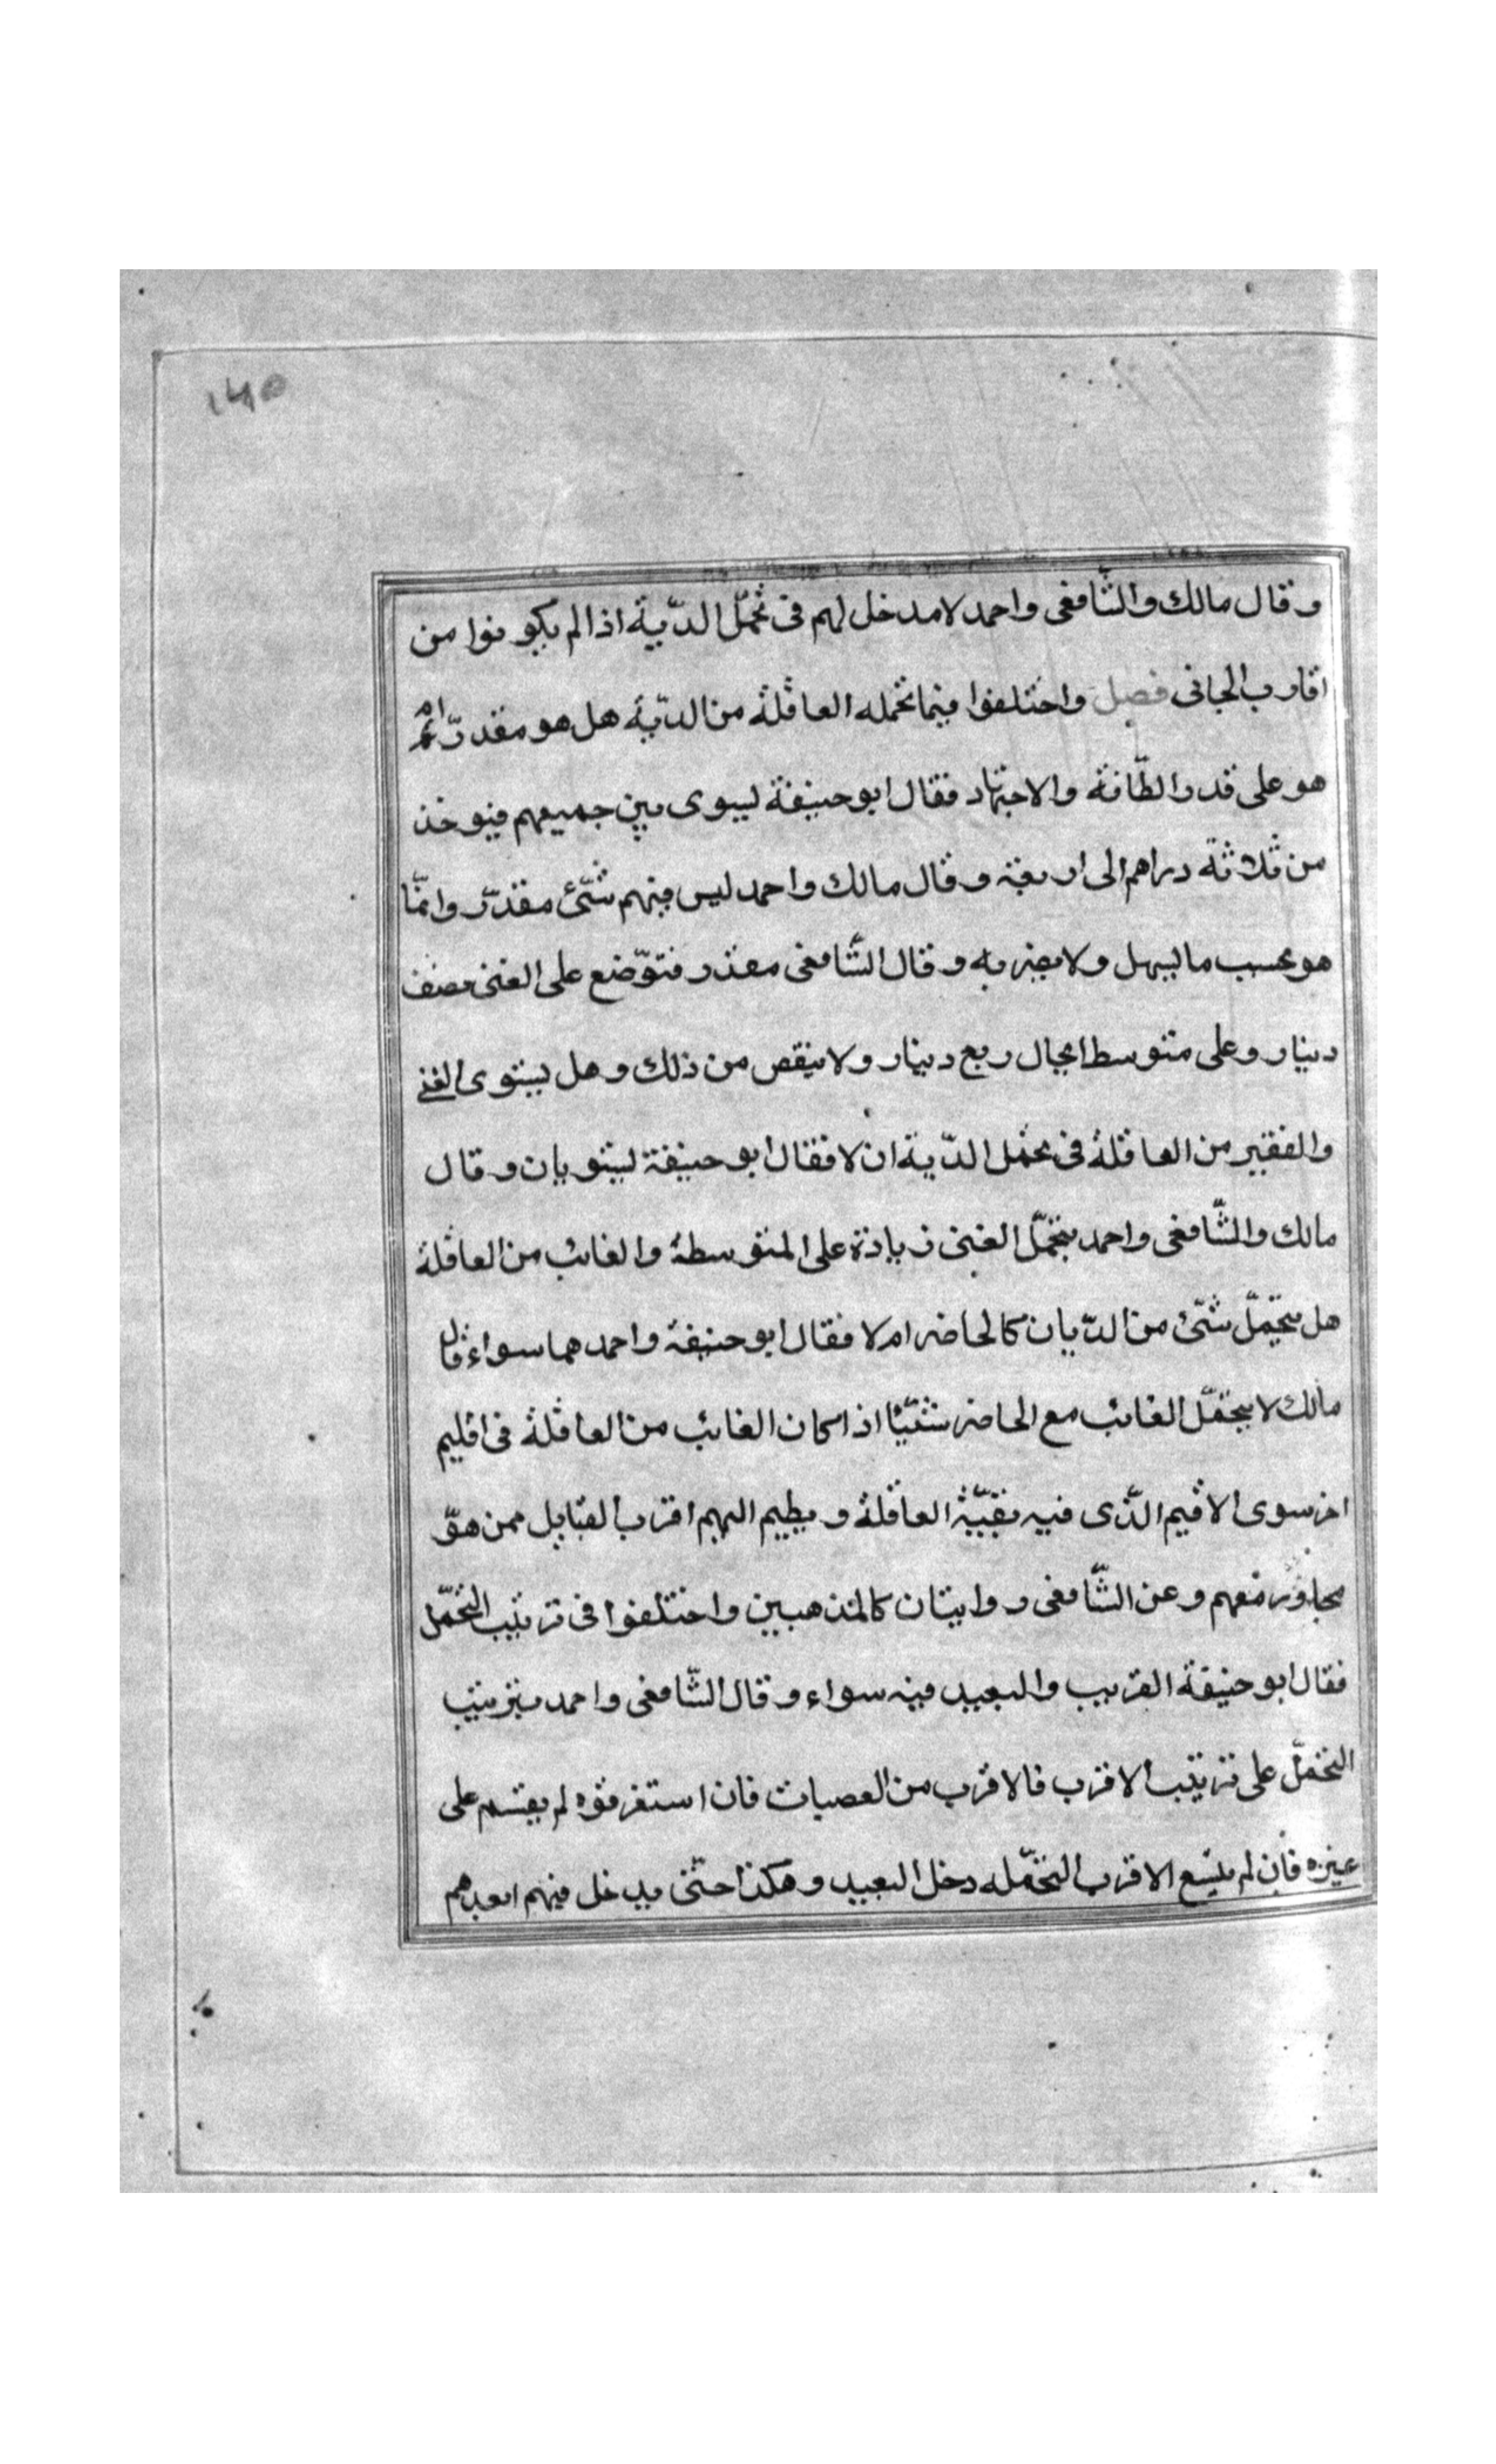 ١٤٥
وقال مالك والشّافعى واحمد لامدخل لهم فى تحمّل الدّية اذا لم يكونوا من
اقارب الجانى فصل واختلفوا فيما تحمله العاقلة من الدّية هل هو مقدرّ ام
هو على قدر الطّاقة والاجتهاد فقال ابو حنيفة يسوى بين جميعهم فيوخذ
من ثلاثة دراهم الى اربعة وقال مالك واحمد ليس فيهم شىّٔ مقدّر وانمّا
هو بحسب ما يسهل ولا يضر به وقال الشّافعى مقدر فتوّضع على الغنى نصف
دينار وعلى متوسط الحال ربع دينار ولا ينقص من ذلك وهل يستوى الغنى
والفقير من العاقلة فى تحمل الدّية ان لا فقال ابو حنيفة يستويان وقال
مالك والشّافعى واحمد يتحمّل الغنى زيادة على المتوسطة والغائب من العاقلة
هل يتحمّل شىّٔ من الدّيان كالحاضر ام لا فقال ابو حنيفة واحمد هما سواء قال
مالك لا يتحمّل الغائب مع الحاضر شيّئا اذا كان الغائب من العاقلة فى اقليم
اخر سوى الاقيم الذّى فيه بقيّة العاقلة ويطيم اليهم اقرب القبايل ممن هوّ
مجاور معهم وعن الشّافعى روايتان كالمذهبين واختلفوا فى ترتيب التحمّل
فقال ابو حنيفة القريب والبعيد فيه سواء وقال الشّافعى واحمد يترتيب
التحمّل على ترتيب الاقرب فالاقرب من العصبات فان استغرقوه لم يقتسم على
غيره فان لم يتسع الاقرب التحمّله دخل البعيد وهكذا حتّى يدخل فيهم ابعدهم